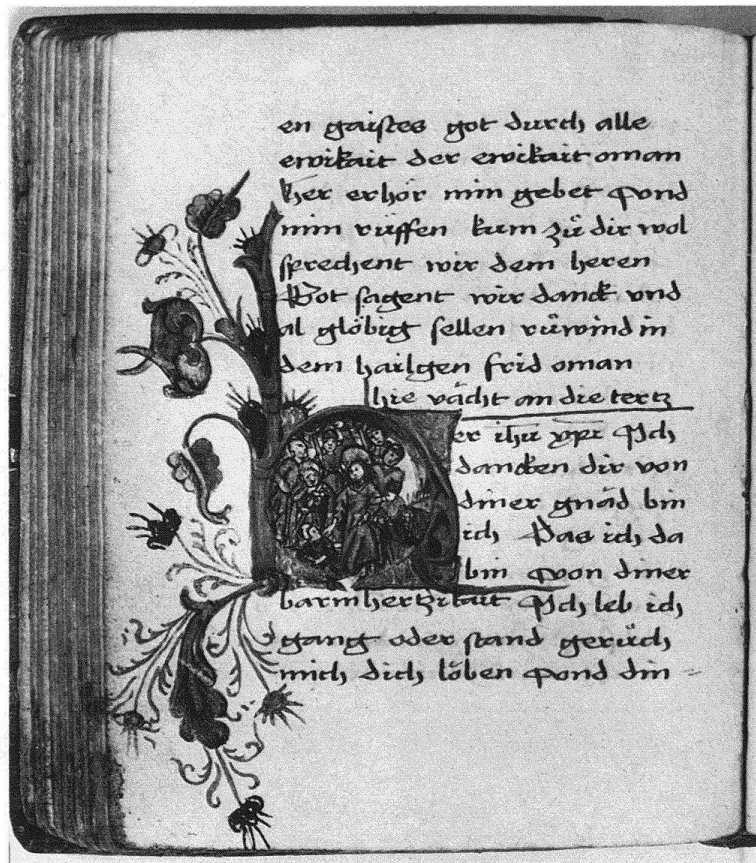 en gaistes got durch alle
ewikait der ewikait oman
her erhör min gebet vond
min rüffen kum zů dir wol
sprechent wir dem heren
Got sagent wir danck vnd
al glöbig sellen rüwind in
dem hailgen frid oman
hie vächt an die tertz
er ihu xpi Ich
dancken dir von
diner gnäd bin
ich Das ich da
bin von diner
barmhertzikait Ich leb ich
gang oder stand gerüch
mich dich löben vond din